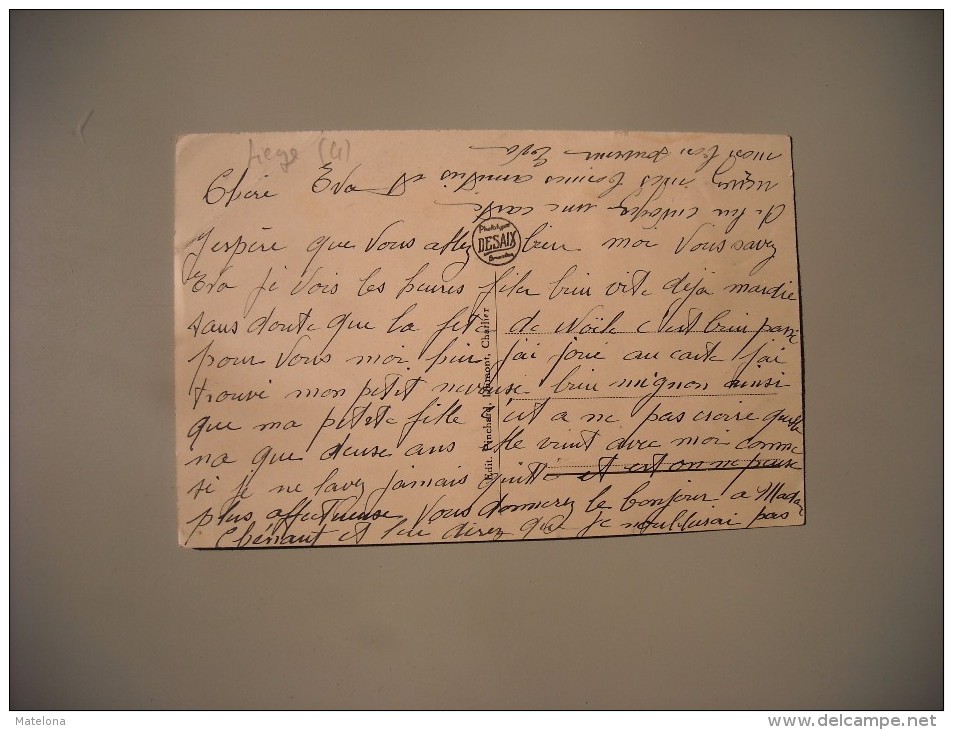 Liege (4)
Chère Eva
J'espère que vous allez bien moi vous savez
Eva je vois les heures filer bien vite déjà mardie
sans doute que la fête de Noële c'est bien passé
pour vous moi bien j'ai joué au carte j'ai
trouvé mon petit neveuse bien mignon ainsi
que ma petite fille c'est a ne pas croire quelle
na que deuse ans elle vient avec moi comme
si je ne lavez jamais quitté et est on ne peuse
plus affectueuse vous donnerez le bonjour a Madame
et lui direz que je n'oublierai pas
de lui envoyer une carte
mes bonnes amitiés et
mon bon souvenir
Phototypie
DESAIX
Bruxelles
Edit. Pinchard, Dumont, Charlier
Matelona
http://www.delcampe.net